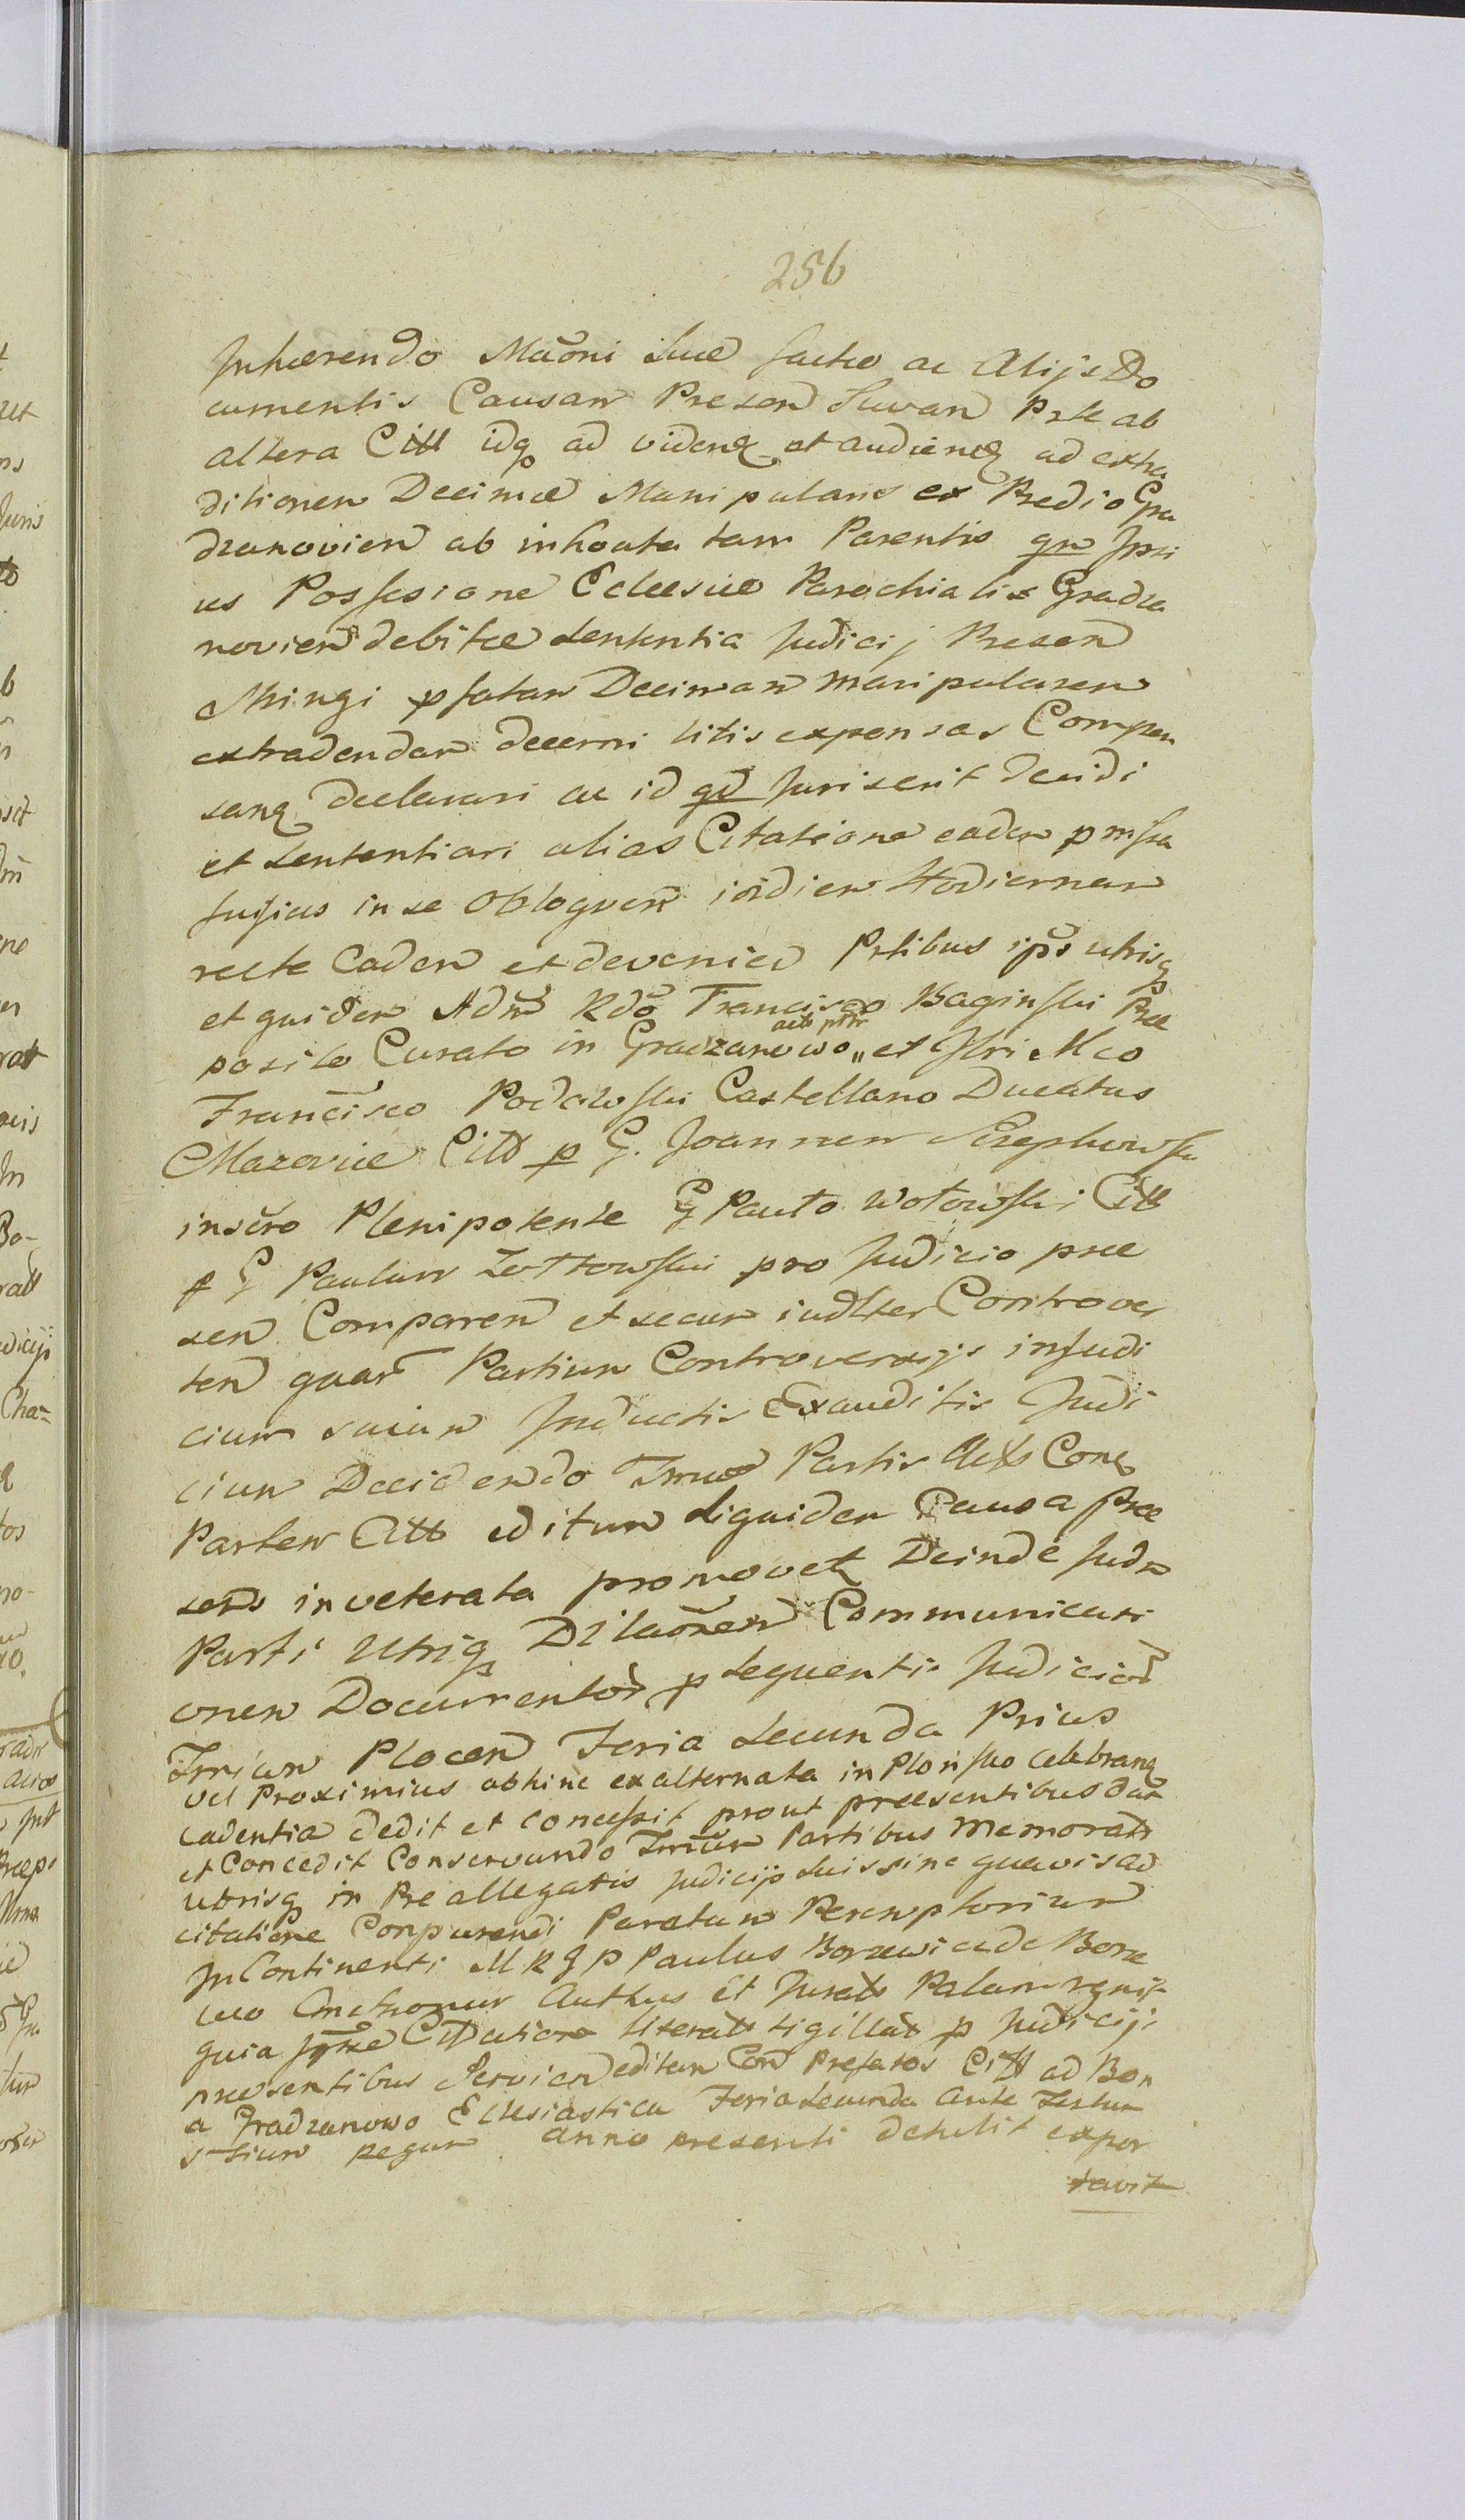 256
Inhærendo Maõni Suæ factæ ac Alijs Do
cumentis Causam Presen Suam Prte ab
altera Citt idq ad videnq et audienq ad extra
ditionem Decimæ Manipularis ex Predio Gra
dzanovien ab inhoata tam Parentis qm Ipsi
us Possesione Eclesiæ Parochialis Gradza
novien debitæ Sententia Judicij Presen
Stringi pfatam Decimam manipularem
extradendam decerni litis expensas Compen
sanq declarari ac id qd Juris erit decidi
et Sententiari alias Citatione eadem
fusius in se Obloquen diem Hodiernam
recte Caden et devenien Prtibus ips utrisq
et quidem Adm Rdo Francisco Baginski Præ
posito Curato in Gradzanowo „ et Illri Mco
Francisco Podoski Castellano Ducatus
Mazoviæ Citt p G. Joannem
Plenipotente G Paulo Wotowski Citt
p G Paulum Zottowski pro Judicio præ
sen Comparen et secum iudlter Controver
ten quar Partium Controversijs in Judi
cium suum Inductis Exauditis Judi
cium Decidendo Trmum Partis Acts Conq
Partem Citt editum Siquidem Causa præ
sens inveterata promovetz Deinde Judm
Parti Utriq Dilaõnem Communicati
onem Documentor p Sequentis Judicior
Trmium Plocen Feria Secunda Prius
vel Proximius abhinc ex alternata in Plonsko Celebranq
cadentia dedit et concessit prout præsentibus dat
et Concedit Conservando Trmum Partibus memorats
utrisq in Preallegatis Judicijs Suis sine quavis ad
citatione Conparendi Paratum Peremptorium
In Continenti M R G p Paulus
Authus et Jurats Palam
quia Citationes literats sigillats p Judicijs
præsentibus Servien editam Con Prefatos Citt ad Bon
a Gradzanowo Eclesiastica Feria Secunda ante Festum
S-tium Regum anno presenti detulit expor
tavit